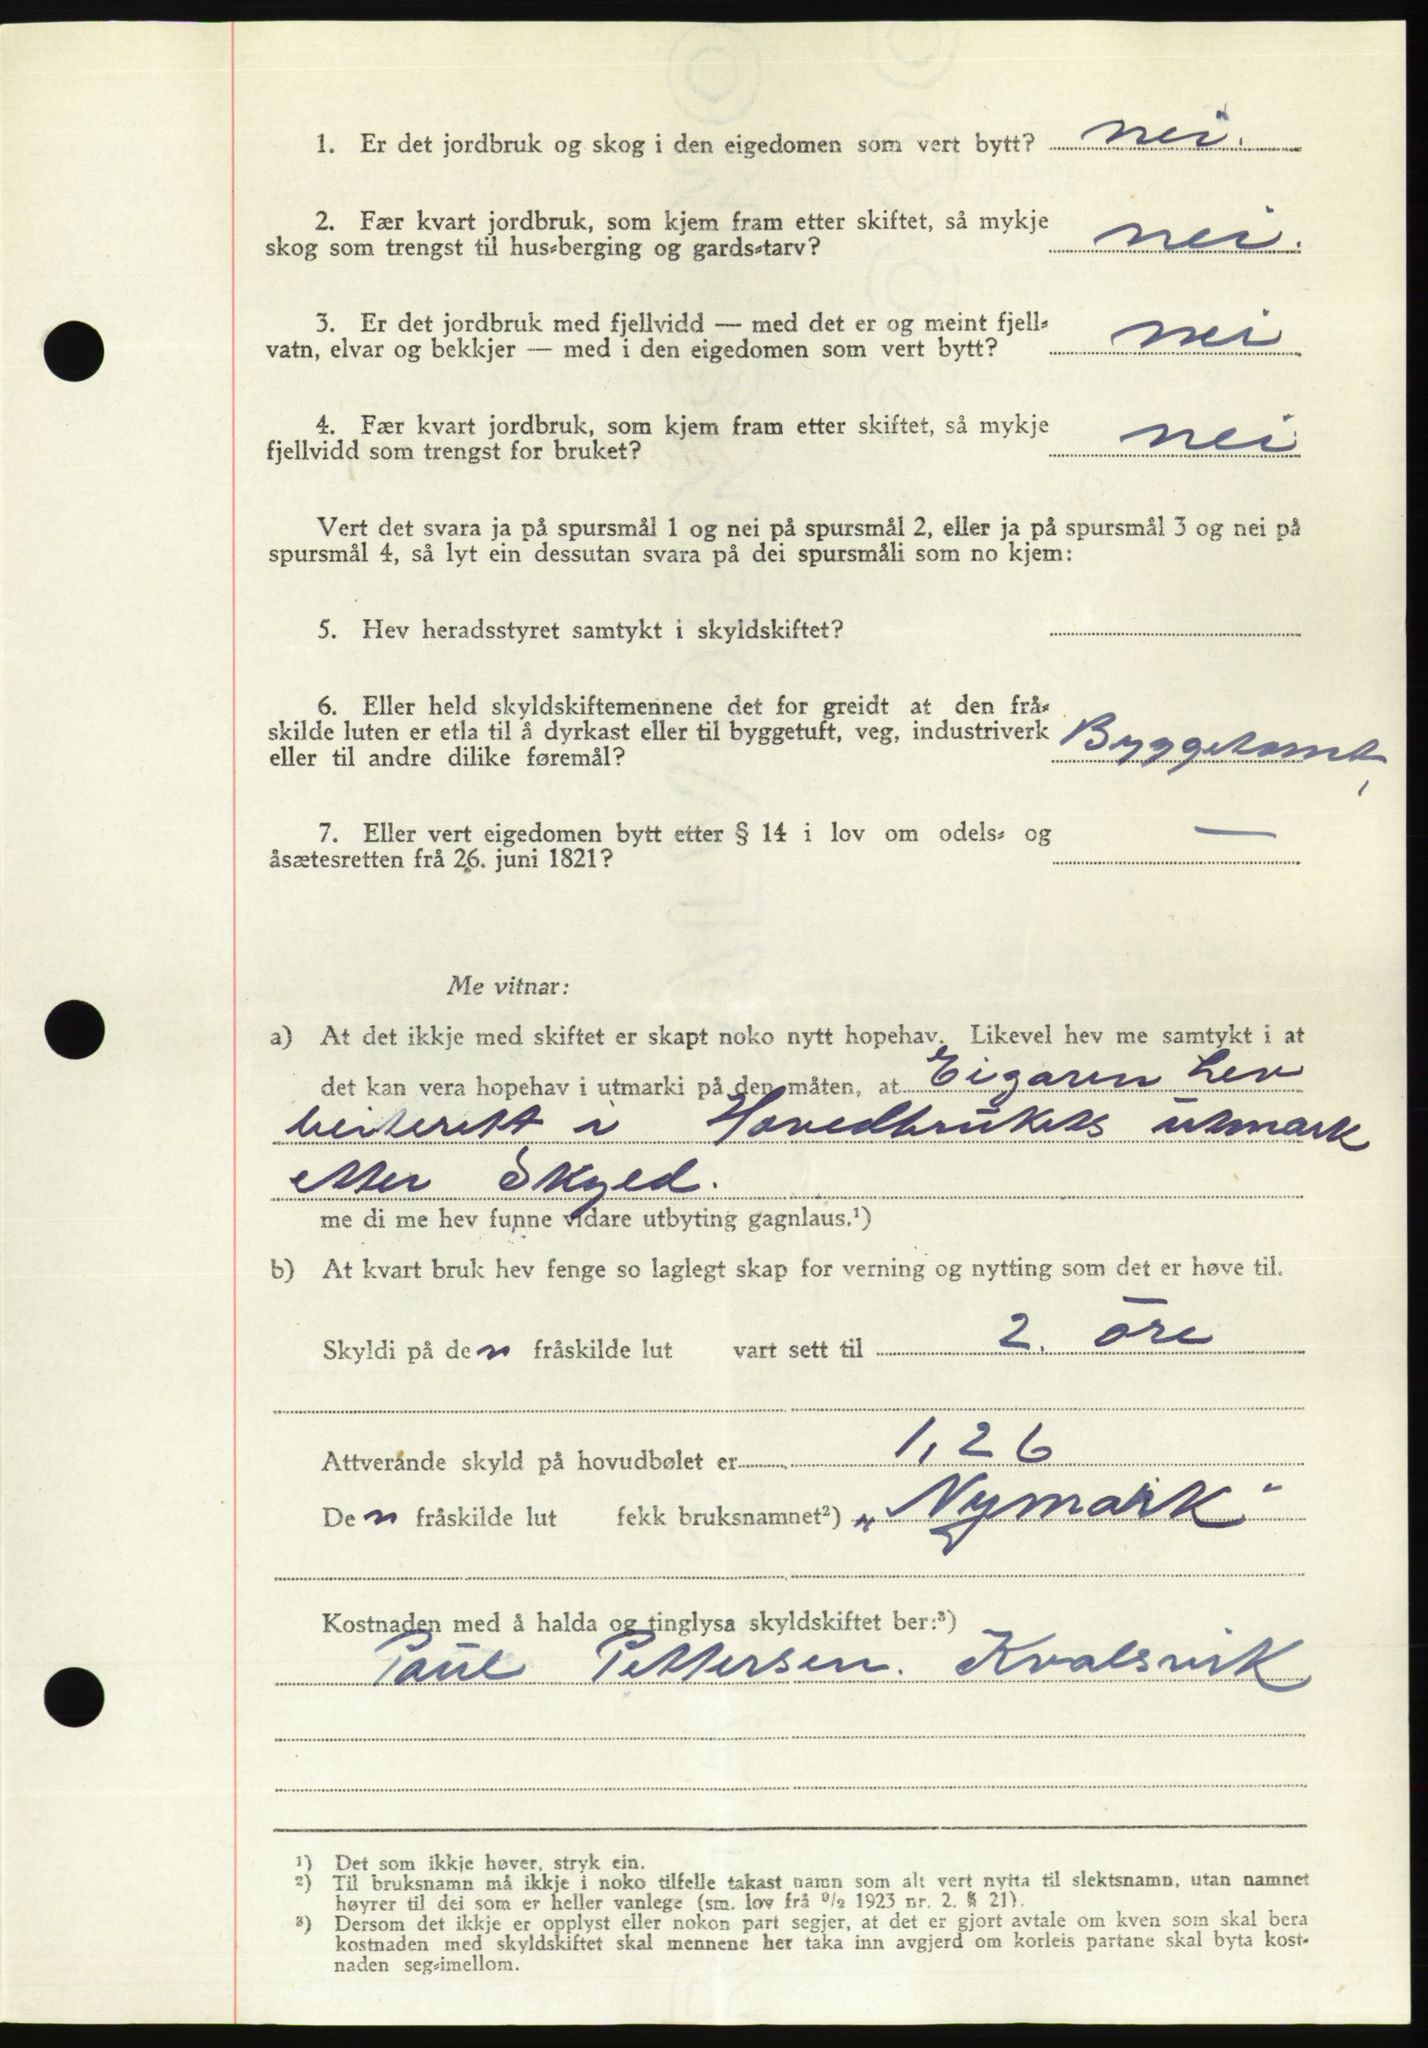 1. Er det jordbruk og skog i den eigedomen som vert bytt? nei.
2. Fær kvart jordbruk, som kjem fram etter skiftet, så mykje
skog som trengst til hus-berging og gards-tarv? nei.
3. Er det jordbruk med fjellvidd — med det er og meint fjell-
vatn, elvar og bekkjer — med i den eigedomen som vert bytt? nei
4. Fær kvart jordbruk, som kjem fram etter skiftet, så mykje
fjellvidd som trengst for bruket? nei
Vert det svara ja på spursmål 1 og nei på spursmål 2, eller ja på spursmål 3 og nei på
spursmål 4, så lyt ein dessutan svara på dei spursmåli som no kjem:
5. Hev heradsstyret samtykt i skyldskiftet?
6. Eller held skyldskiftemennene det for greidt at den frå-
skilde luten er etla til å dyrkast eller til byggetuft, veg, industriverk
eller til andre dilike føremål? Byggetomt,
7. Eller vert eigedomen bytt etter § 14 i lov om odels- og —
åsætesretten frå 26. juni 1821?
Me vitnar:
a) At det ikkje med skiftet er skapt noko nytt hopehav. Likevel hev me samtykt i at
det kan vera hopehav i utmarki på den måten, at Eigaren hev
beiterett i Hovedbrukets utmark
etter Skyld.
me di me hev funne vidare utbyting gagnlaus.¹)
b) At kvart bruk hev fenge so laglegt skap for verning og nytting som det er høve til.
Skyldi på den fråskilde lut vart sett til 2. öre
Attverande skyld på hovudbølet er 1,26
Den fråskilde lut fekk bruksnamnet²) „Nymark"
Kostnaden med å halda og tinglysa skyldskiftet ber:³)
Paul Pettersen. Kvalsvik
¹) Det som ikkje høver, stryk ein.
²) Til bruksnamn må ikkje i noko tilfelle takast namn som alt vert nytta til slektsnamn, utan namnet
høyrer til dei som er heller vanlege (sm. lov frå 9/2 1923 nr. 2. § 21).
³) Dersom det ikkje er opplyst eller nokon part segjer, at det er gjort avtale om kven som skal bera
kostnaden med skyldskiftet skal mennene her taka inn avgjerd om korleis partane skal byta kost-
naden seg-imellom.